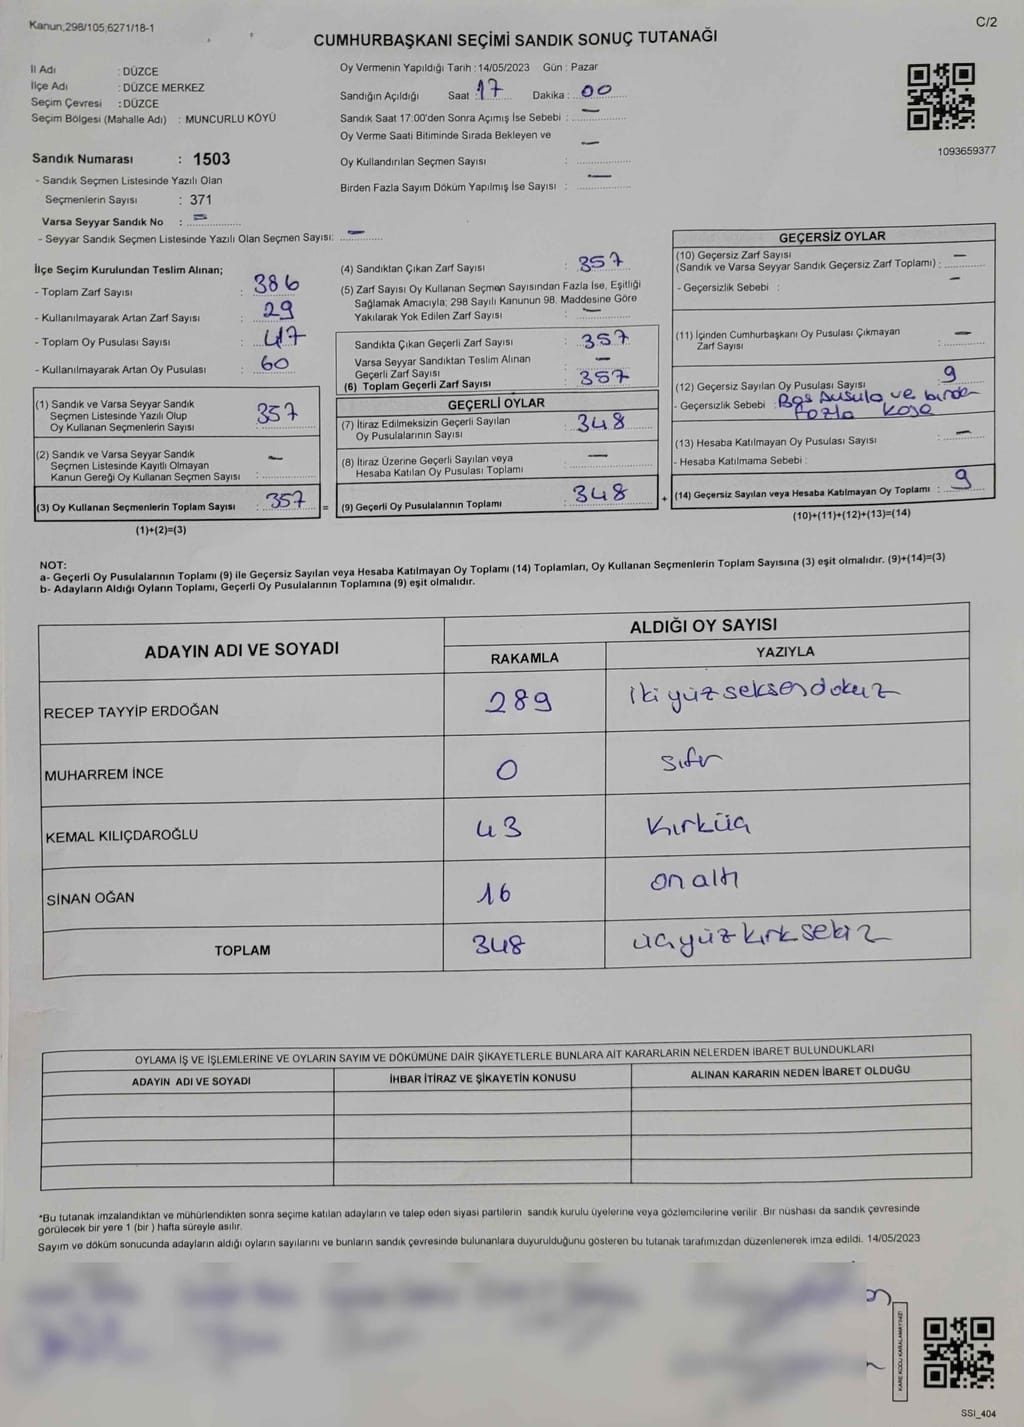 Kanun,298/105,6271/18-1
C/2
CUMHURBAŞKANI SEÇİMİ SANDIK SONUÇ TUTANAĞI
İl Adı : DÜZCE
İlçe Adı : DÜZCE MERKEZ
Seçim Çevresi : DÜZCE
Seçim Bölgesi (Mahalle Adı) : MUNCURLU KÖYÜ
Oy Vermenin Yapıldığı Tarih : 14/05/2023 Gün : Pazar
Sandığın Açıldığı Saat : 17 Dakika : 00
Sandık Saat 17:00'den Sonra Açımış İse Sebebi : —
Oy Verme Saati Bitiminde Sırada Bekleyen ve
Oy Kullandırılan Seçmen Sayısı : —
Birden Fazla Sayım Döküm Yapılmış İse Sayısı : —
1093659377
Sandık Numarası : 1503
- Sandık Seçmen Listesinde Yazılı Olan
Seçmenlerin Sayısı : 371
Varsa Seyyar Sandık No : —
- Seyyar Sandık Seçmen Listesinde Yazılı Olan Seçmen Sayısı: —
İlçe Seçim Kurulundan Teslim Alınan;
- Toplam Zarf Sayısı : 386
- Kullanılmayarak Artan Zarf Sayısı : 29
- Toplam Oy Pusulası Sayısı : 417
- Kullanılmayarak Artan Oy Pusulası : 60
(1) Sandık ve Varsa Seyyar Sandık
Seçmen Listesinde Yazılı Olup
Oy Kullanan Seçmenlerin Sayısı : 357
(2) Sandık ve Varsa Seyyar Sandık
Seçmen Listesinde Kayıtlı Olmayan
Kanun Gereği Oy Kullanan Seçmen Sayısı : —
(3) Oy Kullanan Seçmenlerin Toplam Sayısı : 357 =
(1)+(2)=(3)
(4) Sandıktan Çıkan Zarf Sayısı : 357
(5) Zarf Sayısı Oy Kullanan Seçmen Sayısından Fazla İse, Eşitliği
Sağlamak Amacıyla; 298 Sayılı Kanunun 98. Maddesine Göre
Yakılarak Yok Edilen Zarf Sayısı : —
Sandıkta Çıkan Geçerli Zarf Sayısı : 357
Varsa Seyyar Sandıktan Teslim Alınan
Geçerli Zarf Sayısı : —
(6) Toplam Geçerli Zarf Sayısı : 357
GEÇERLİ OYLAR
(7) İtiraz Edilmeksizin Geçerli Sayılan
Oy Pusulalarının Sayısı : 348
(8) İtiraz Üzerine Geçerli Sayılan veya
Hesaba Katılan Oy Pusulası Toplamı : —
(9) Geçerli Oy Pusulalarının Toplamı : 348 +
GEÇERSİZ OYLAR
(10) Geçersiz Zarf Sayısı
(Sandık ve Varsa Seyyar Sandık Geçersiz Zarf Toplamı) : —
- Geçersizlik Sebebi : —
(11) İçinden Cumhurbaşkanı Oy Pusulası Çıkmayan
Zarf Sayısı : —
(12) Geçersiz Sayılan Oy Pusulası Sayısı : 9
- Geçersizlik Sebebi : ve birden
fazla kaşe
(13) Hesaba Katılmayan Oy Pusulası Sayısı : —
- Hesaba Katılmama Sebebi :
(14) Geçersiz Sayılan veya Hesaba Katılmayan Oy Toplamı : 9
(10)+(11)+(12)+(13)=(14)
NOT:
a- Geçerli Oy Pusulalarının Toplamı (9) ile Geçersiz Sayılan veya Hesaba Katılmayan Oy Toplamı (14) Toplamları, Oy Kullanan Seçmenlerin Toplam Sayısına (3) eşit olmalıdır. (9)+(14)=(3)
b- Adayların Aldığı Oyların Toplamı, Geçerli Oy Pusulalarının Toplamına (9) eşit olmalıdır.
ADAYIN ADI VE SOYADI
ALDIĞI OY SAYISI
RAKAMLA YAZIYLA
RECEP TAYYİP ERDOĞAN 289 ikiyüzseksendokuz
MUHARREM İNCE 0 sıfır
KEMAL KILIÇDAROĞLU 43 Kırküç
SİNAN OĞAN 16 onaltı
TOPLAM 348 üçyüzkırksekiz
OYLAMA İŞ VE İŞLEMLERİNE VE OYLARIN SAYIM VE DÖKÜMÜNE DAİR ŞİKAYETLERLE BUNLARA AİT KARARLARIN NELERDEN İBARET BULUNDUKLARI
ADAYIN ADI VE SOYADI İHBAR İTİRAZ VE ŞİKAYETİN KONUSU ALINAN KARARIN NEDEN İBARET OLDUĞU
*Bu tutanak imzalandıktan ve mühürlendikten sonra seçime katılan adayların ve talep eden siyasi partilerin sandık kurulu üyelerine veya gözlemcilerine verilir. Bir nüshası da sandık çevresinde
görülecek bir yere 1 (bir ) hafta süreyle asılır.
Sayım ve döküm sonucunda adayların aldığı oyların sayılarını ve bunların sandık çevresinde bulunanlara duyurulduğunu gösteren bu tutanak tarafımızdan düzenlenerek imza edildi. 14/05/2023
KARE KODU KARALAMAYINIZ!
SSI_404